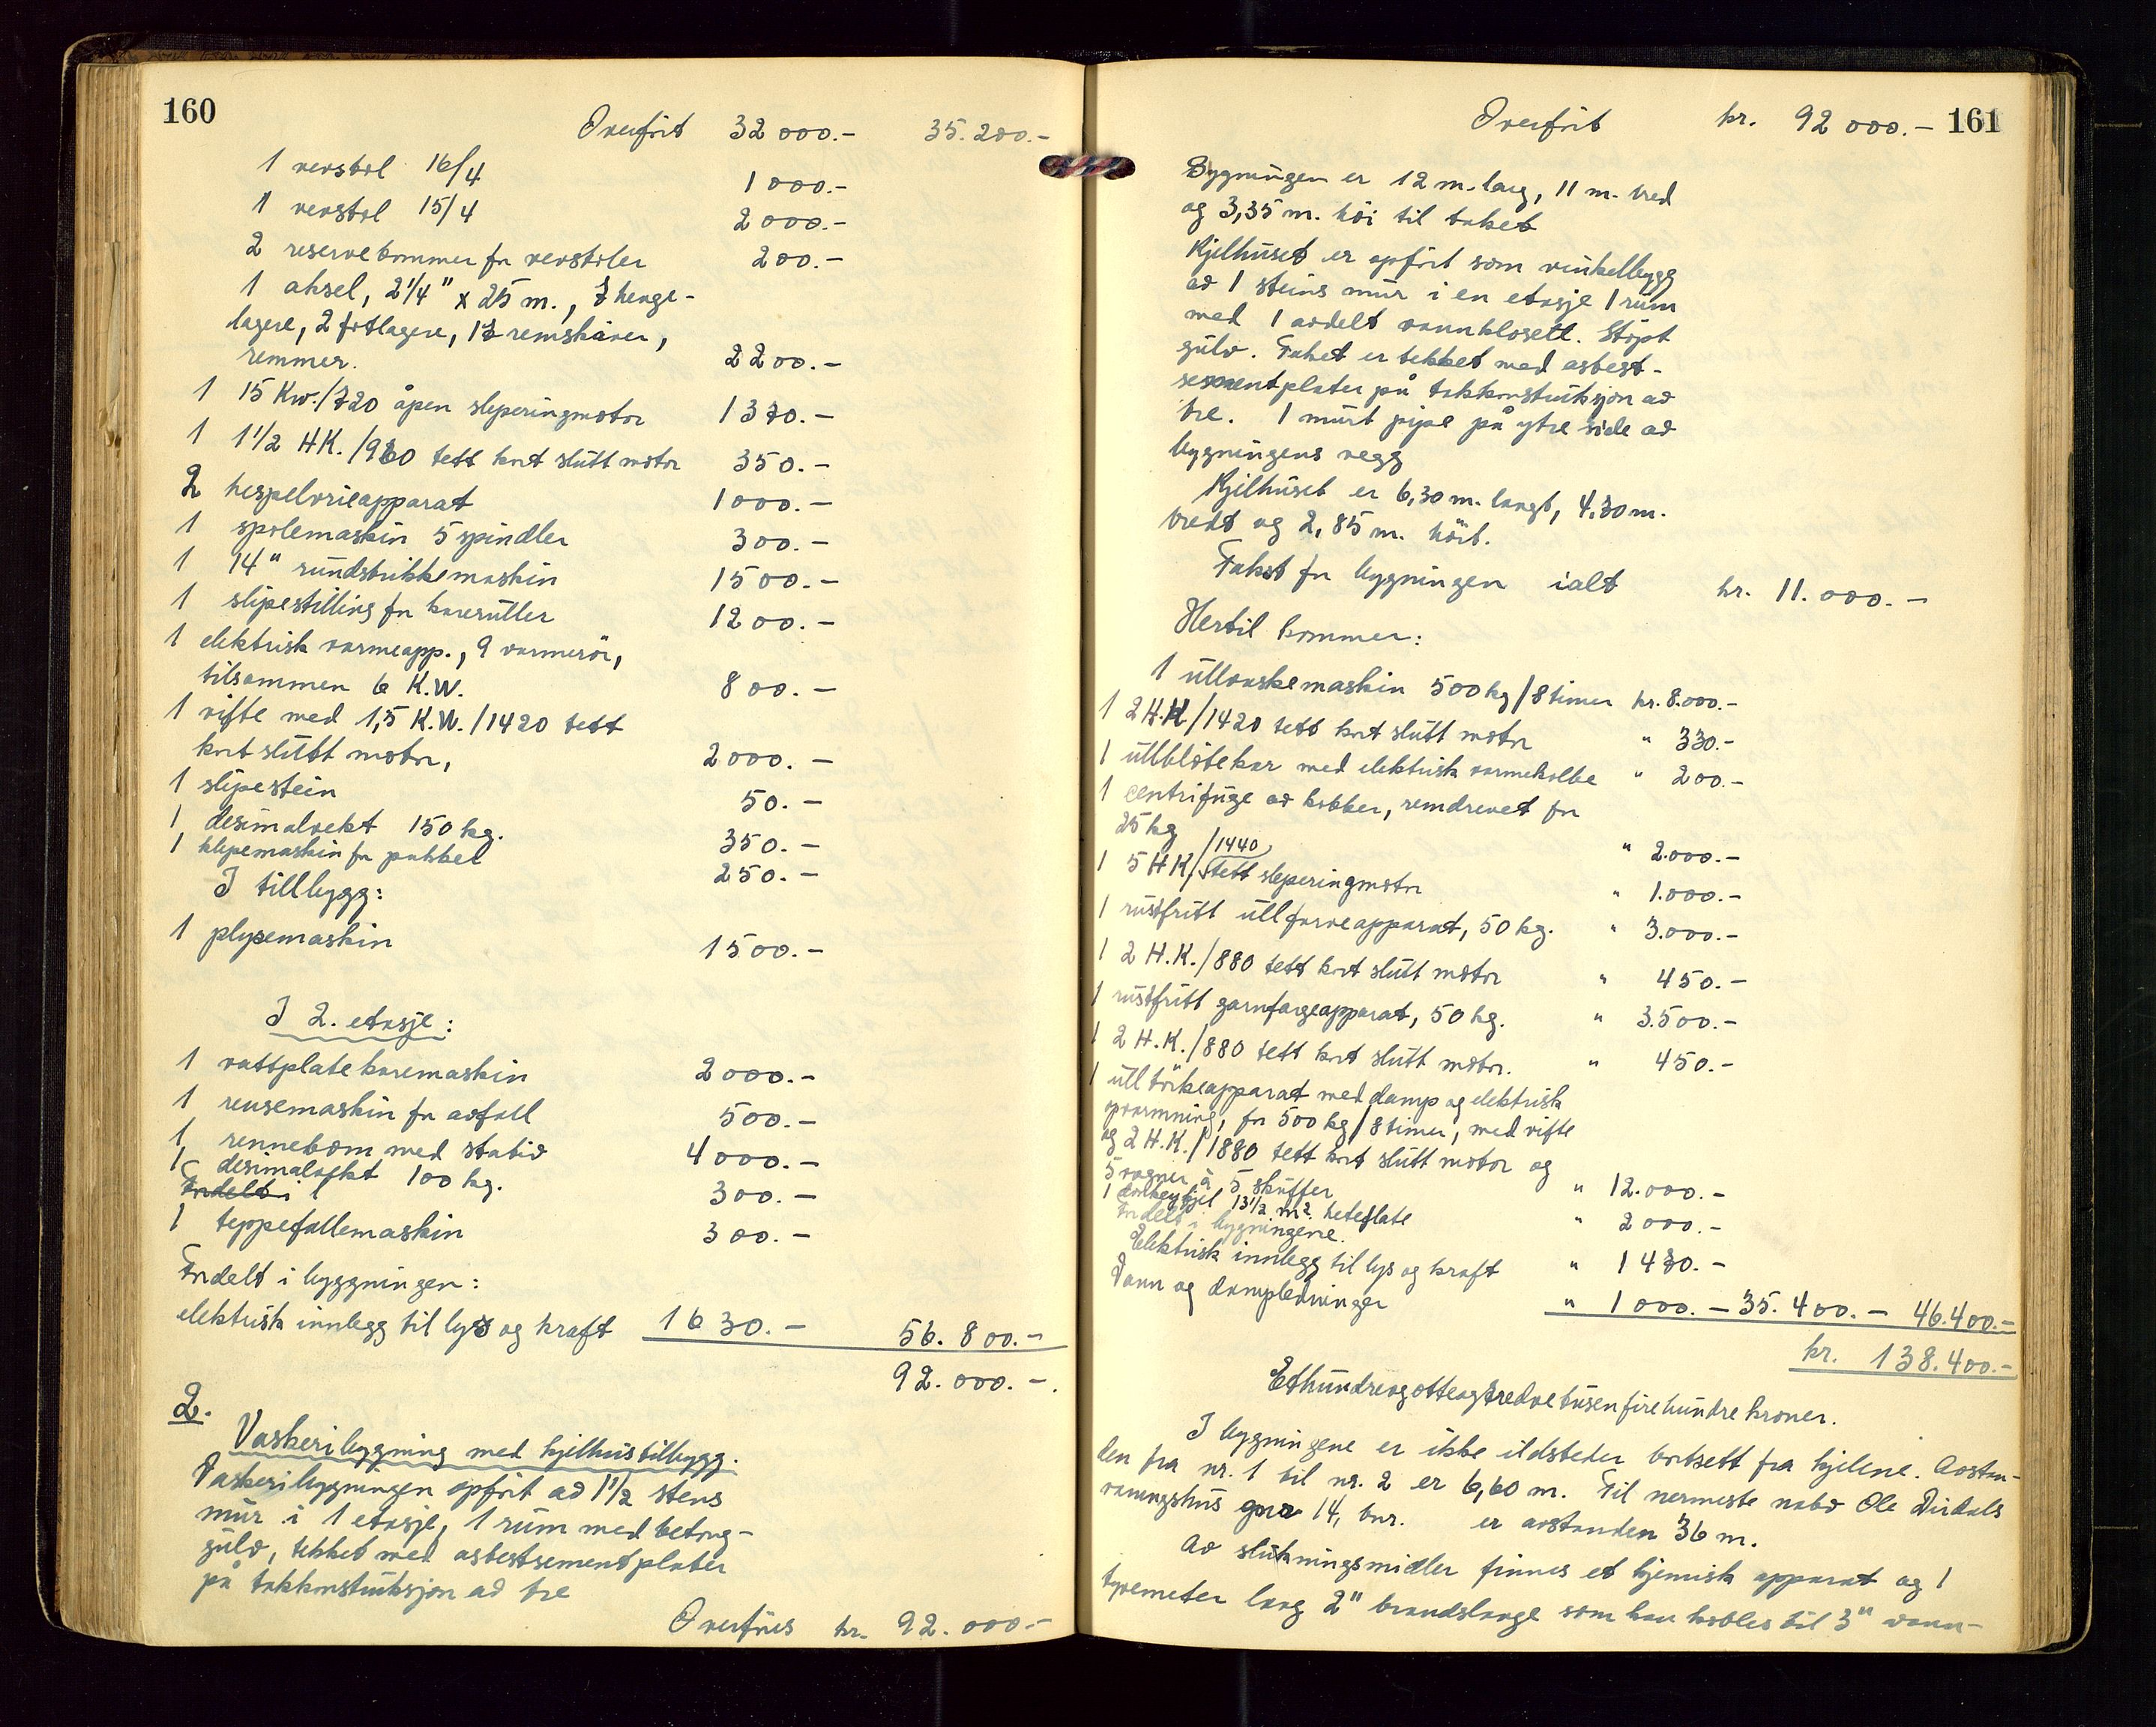 160
Overfört 32 000.- 35.200.-
1 vevstol 16/4 1000.-
1 vevstol 15/4 2000.-
2 reservebommer for vevstoler 200.-
1 aksel, 2 1/4" x 25 m., 7 henge-
lagere, 2 fotlagere, 17 remskiver,
remmer. 2200.-
1 15 Kw./720 åpen sleperingmotor 1370.-
1 1 1/2 HK./960 tett kortslutt motor 350.-
2 hespelvrieapparat 1000.-
1 spolemaskin 5 spindler 300.-
1 14" rundstrikkemaskin 1500.-
1 slipestilling for kareruller 1200.-
1 elektrisk varmeapp., 9 varmerör,
tilsammen 6 K.W. 800.-
1 vifte med 1,5 K.W./1420 tett
kortslutt motor, 2000.-
1 slipestein 50.-
1 desimalvekt 150 kg. 350.-
1 klipemaskin for pakker 250.-
I tillbygg:
1 plysemaskin 1500.-
I 2. etasje:
1 vattplatekaremaskin 2000.-
1 rensemaskin for avfall 500.-
1 rennebom med stativ 4000.-
1 desimalvekt 100 kg. 300.-
Fordelt i
1 teppefallemaskin 300.-
Fordelt i byggningen:
elektrisk innlegg til lys og kraft 1630.- 56.800.-
92.000.-.
2.
Vaskeribygning med kjelhustilbygg.
Vaskeribygningen opfört av 1 1/2 stens
mur i 1 etasje, 1 rum med betong-
gulv, tekket med asbestsementplater
på takkonstruksjon av tre
Overföres kr. 92.000.-
161
Overfört kr. 92 000.-
Bygningen er 12 m. lang, 11 m. bred
og 3,35 m. höi til taket
Kjelhuset er opfört som vinkelbygg
av 1 steins mur i en etasje 1 rum
med 1 avdelt vannklosett. Stöpt
gulv. Taket er tekket med asbest-
sementplater på takkonstruksjon av
tre. 1 murt pipe på ytre side av
bygningens vegg
Kjelhuset er 6,30 m. langt, 4,30 m.
bredt og 2,85 m. höit.
Takst for bygningen ialt kr. 11.000.-
Hertil kommer:
1 ullvaskemaskin 500 kg/8 timer kr. 8.000.-
1 2 H.K/1420 tett kortslutt motor " 330.-
1 ullblötekar med elektrisk varmekolbe " 200.-
1 centrifuge av kobber, remdrevet for
25 kg " 2.000.-
1 5 HK/1440 tett sleperingmotor " 1.000.-
1 rustfritt ullfarveapparat, 50 kg. " 3.000.-
1 2 H.K./880 tett kortslutt motor " 450.-
1 rustfritt garnfargeapparat, 50 kg. " 3.500.-
1 2 H.K./880 tett kortslutt motor. " 450.-
1 ulltörkeapparat med damp og elektrisk
opvarmning, for 500 kg/8 timer, med vifte
og 2 H.K./1880 tett kortslutt motor og
5 vogner à 5 skuffer " 12.000.-
1 kjel 13 1/2 m². heteflate " 2000.-
Fordelt i bygningene.
Elektrisk innlegg til lys og kraft " 1470.-
Vann og dampledninger " 1000.- 35.400.- 46.400.-
kr. 138.400.-
Ethundreogotteogtredvetusenfirehundre kroner.
I bygningene er ikke ildsteder bortsett fra kjelene. Avstan-
den fra nr. 1 til nr. 2 er 6,60 m. Til nermeste nabo Ole Dirdals
vaaningshus gnr 14, bnr. er avstanden 36 m.
Av slukningsmidler finnes et kjemisk apparat og 1
tyvemeter lang 2" brandslange som kan kobles til 3" vann-